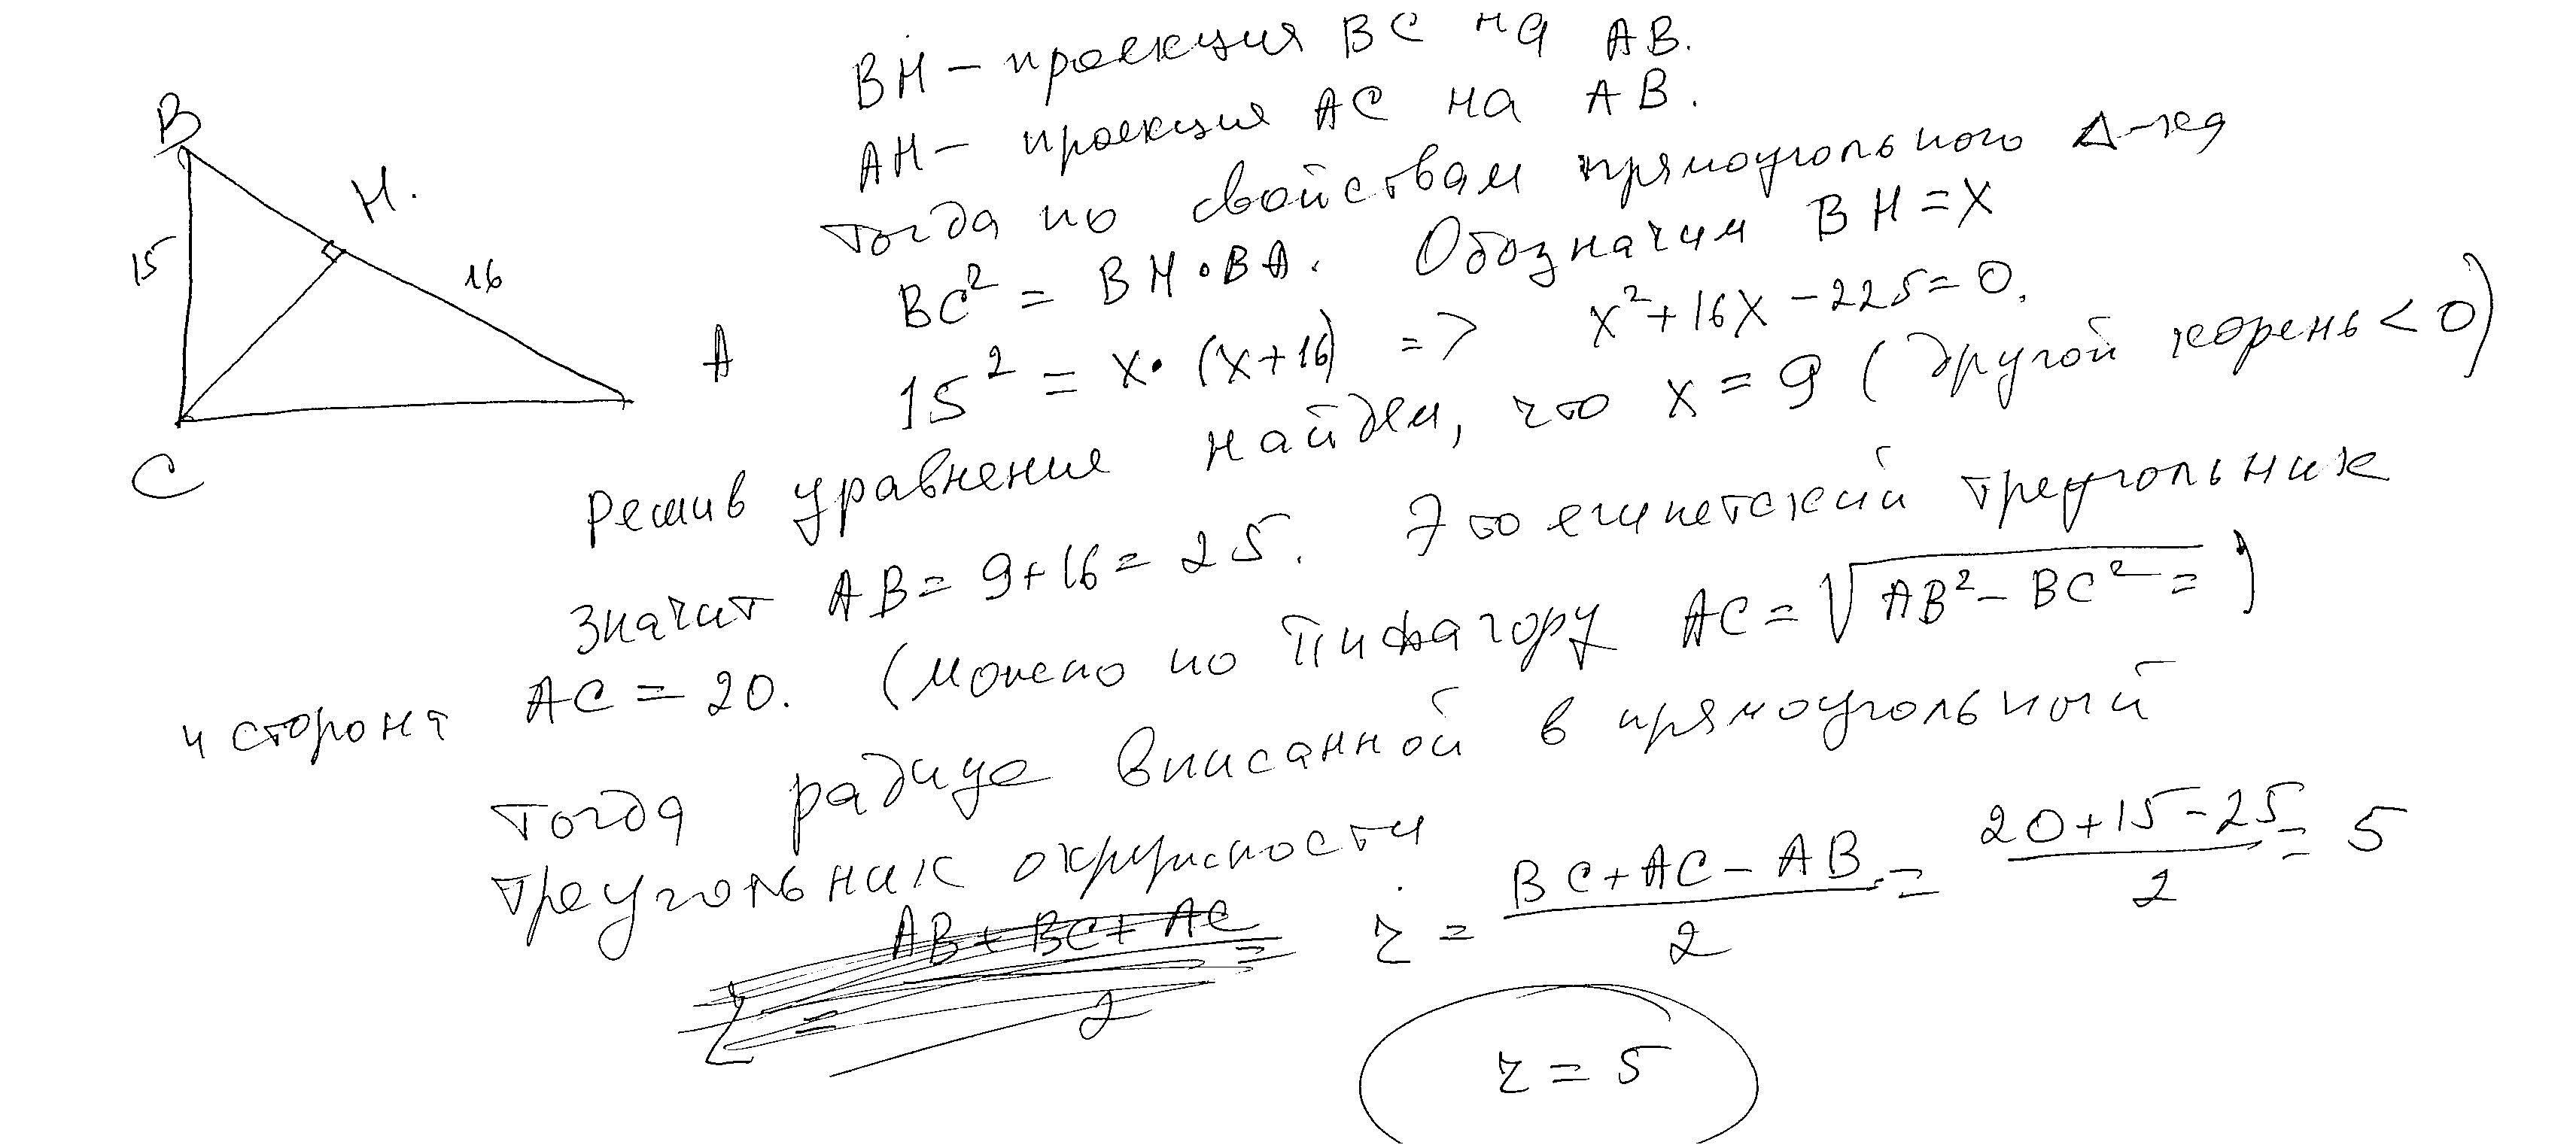 BH – проекция BC на AB.
AH – проекция AC на AB.
тогда по свойствам прямоугольного Δ-ка
BC² = BH · BA. Обозначим BH = x
15² = x · (x+16) => x² + 16x – 225 = 0.
Решив уравнение найдем, что x = 9 (другой корень < 0)
значит AB = 9 + 16 = 25. Это египетский треугольник
и сторона AC = 20. (можно по Пифагору AC = √(AB² – BC² =)
тогда радиус вписанной в прямоугольный
треугольник окружности
r = (AB + BC + AC)/2 =
r = (BC + AC – AB)/2 = (20 + 15 – 25)/2 = 5
r = 5
B
H.
15
16
A
C